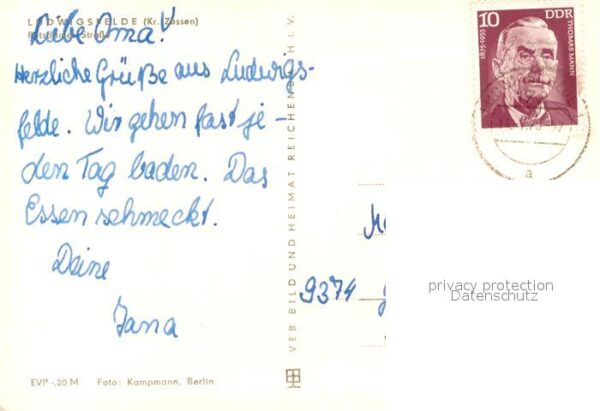 LUDWIGSFELDE (Kr. Zossen)
Potsdamer Straße
Liebe Oma!
Herzliche Grüße aus Ludwigs-
felde. Wir gehen fast je-
den Tag baden. Das
Essen schmeckt.
Deine
Jana
EVP -,20 M Foto: Kampmann, Berlin
VEB BILD UND HEIMAT REICHENBACH I. V.
10 DDR
1875-1955
THOMAS MANN
a
9374
privacy protection
Datenschutz